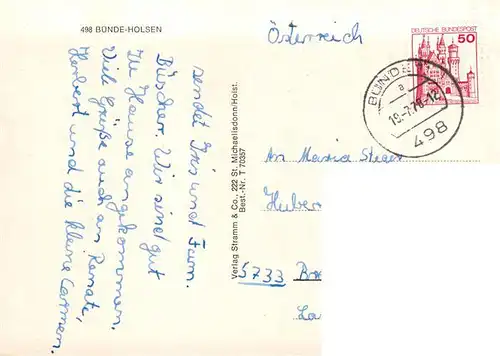 498 BÜNDE-HOLSEN
sendet Iris und Fam.
Büscher. Wir sind gut
zu Hause angekommen.
Viele Grüße auch an Renate,
Herbert und die kleine Carmen.
Verlag Stramm & Co., 222 St. Michaelisdonn/Holst.
Best.-Nr. T 70357
Österreich
DEUTSCHE BUNDESPOST
50
BÜNDE
a
19.-7.78-12
498
An Maria Steger
Huber
5733
La